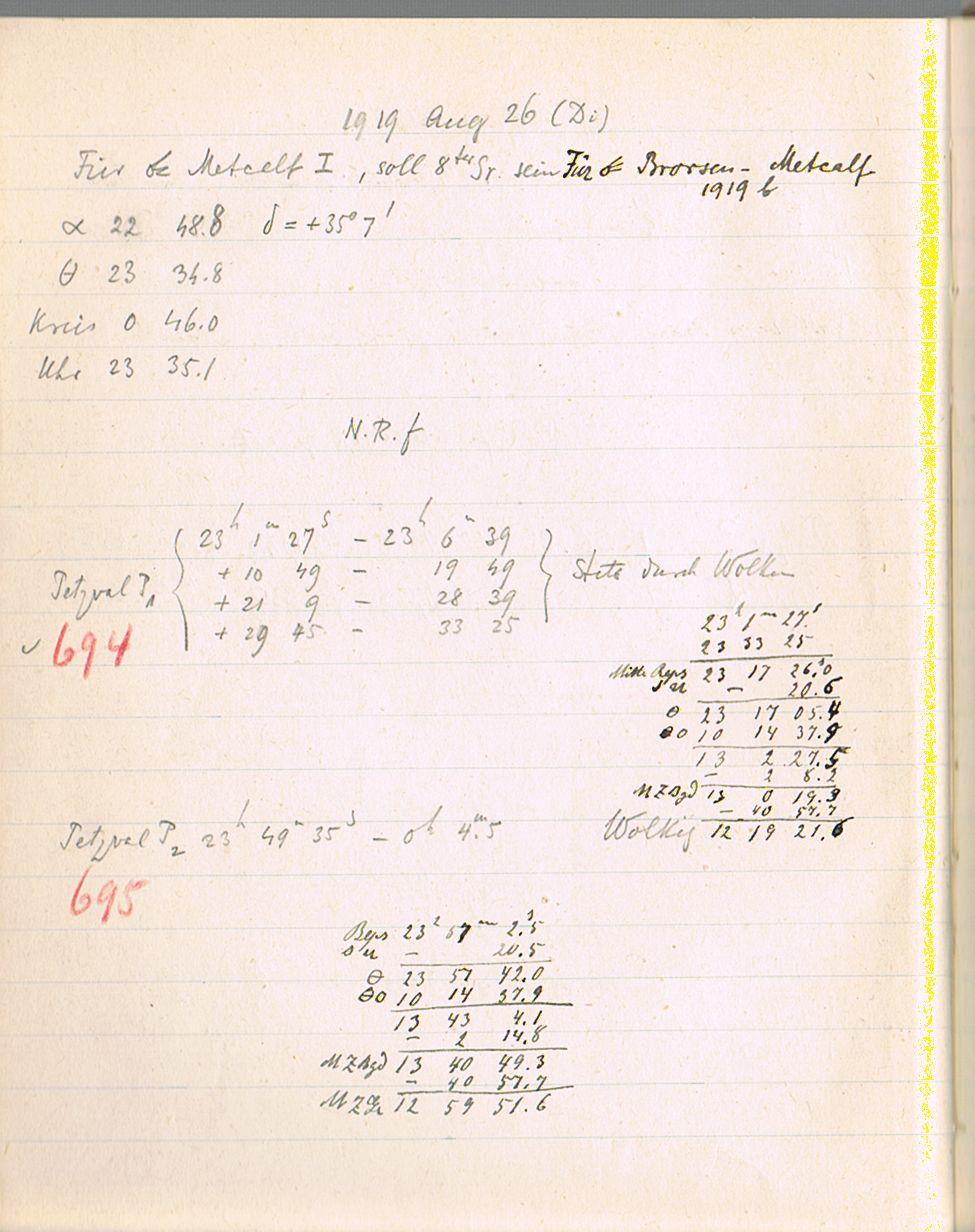 1919 Aug 26 (Di)
Für ☄ Metcalf I, soll 8ter Gr. sein Für ☄ Brorsen-Metcalf
1919 b
α 22 48.8 δ = +35° 7'
θ 23 34.8
Kreis 0 46.0
Uhr 23 35.1
N.R.f
23h 1m 27s – 23h 6m 39
+ 10 49 – 19 49
Petzval P1 Stets durch Wolken
+ 21 9 – 28 39
+ 29 45 – 33 25
✓ 694
23h 1m 27s
23 33 25
Mitte Beps 23 17 26.s0
su – 20.6
θ 23 17 05.4
θ0 10 14 37.9
13 2 27.5
– 2 8.2
MZBgd 13 0 19.3
– 40 57.7
Wolkig 12 19 21.6
Petzval P2 23h 49m 35s – 0h 4m.5
695
Beps 23h 57m 2.s5
su – 20.5
θ 23 57 42.0
θ0 10 14 37.9
13 43 4.1
– 2 14.8
MZBgd 13 40 49.3
– 40 57.7
MZGr 12 59 51.6